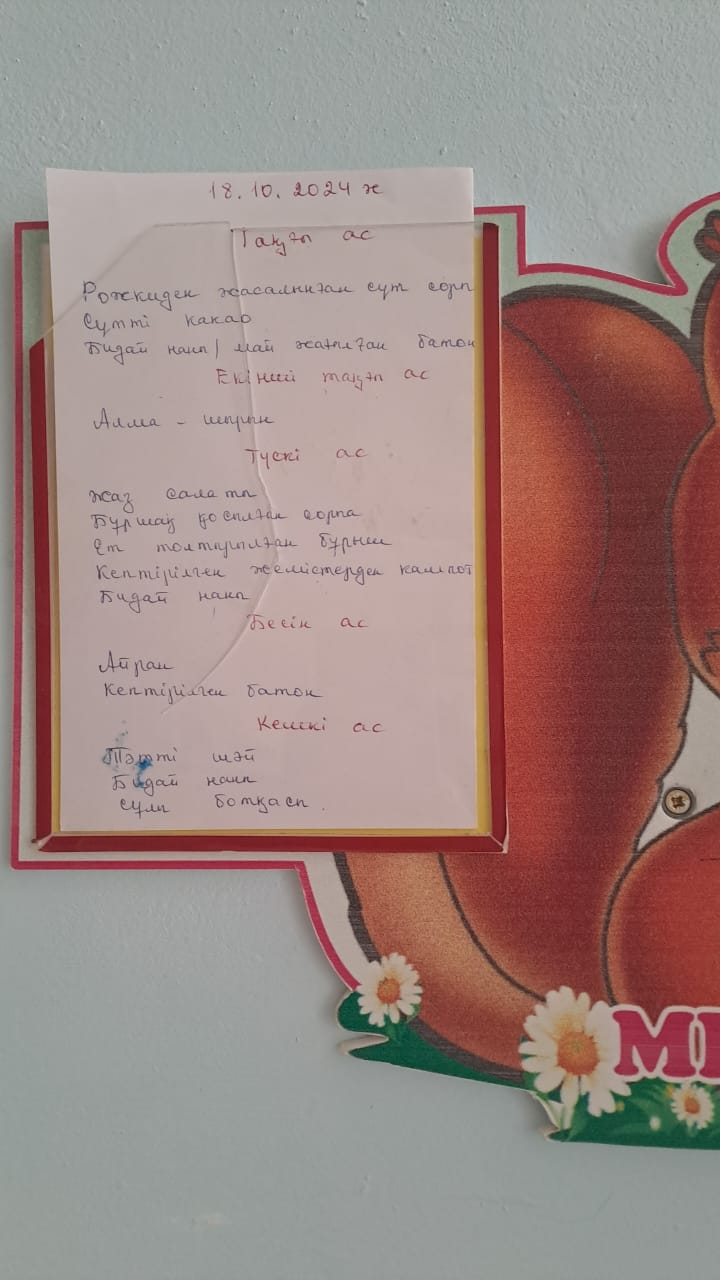 18.10.2024 ж
Таңғы ас
Рожкиден жасалынған сүт сорп
Сүтті какао
Бидай наны / май жағылған батон
Екінші таңғы ас
Алма - шырын
Түскі ас
Жаз салаты
Бұршақ қосылған сорпа
Ет толтырылған бұрыш
Кептірілген жемістерден кампот
Бидай наны
Бесін ас
Айран
Кептірілген батон
Кешкі ас
Тәтті шәй
Бидай наны
Сұлы ботқасы.